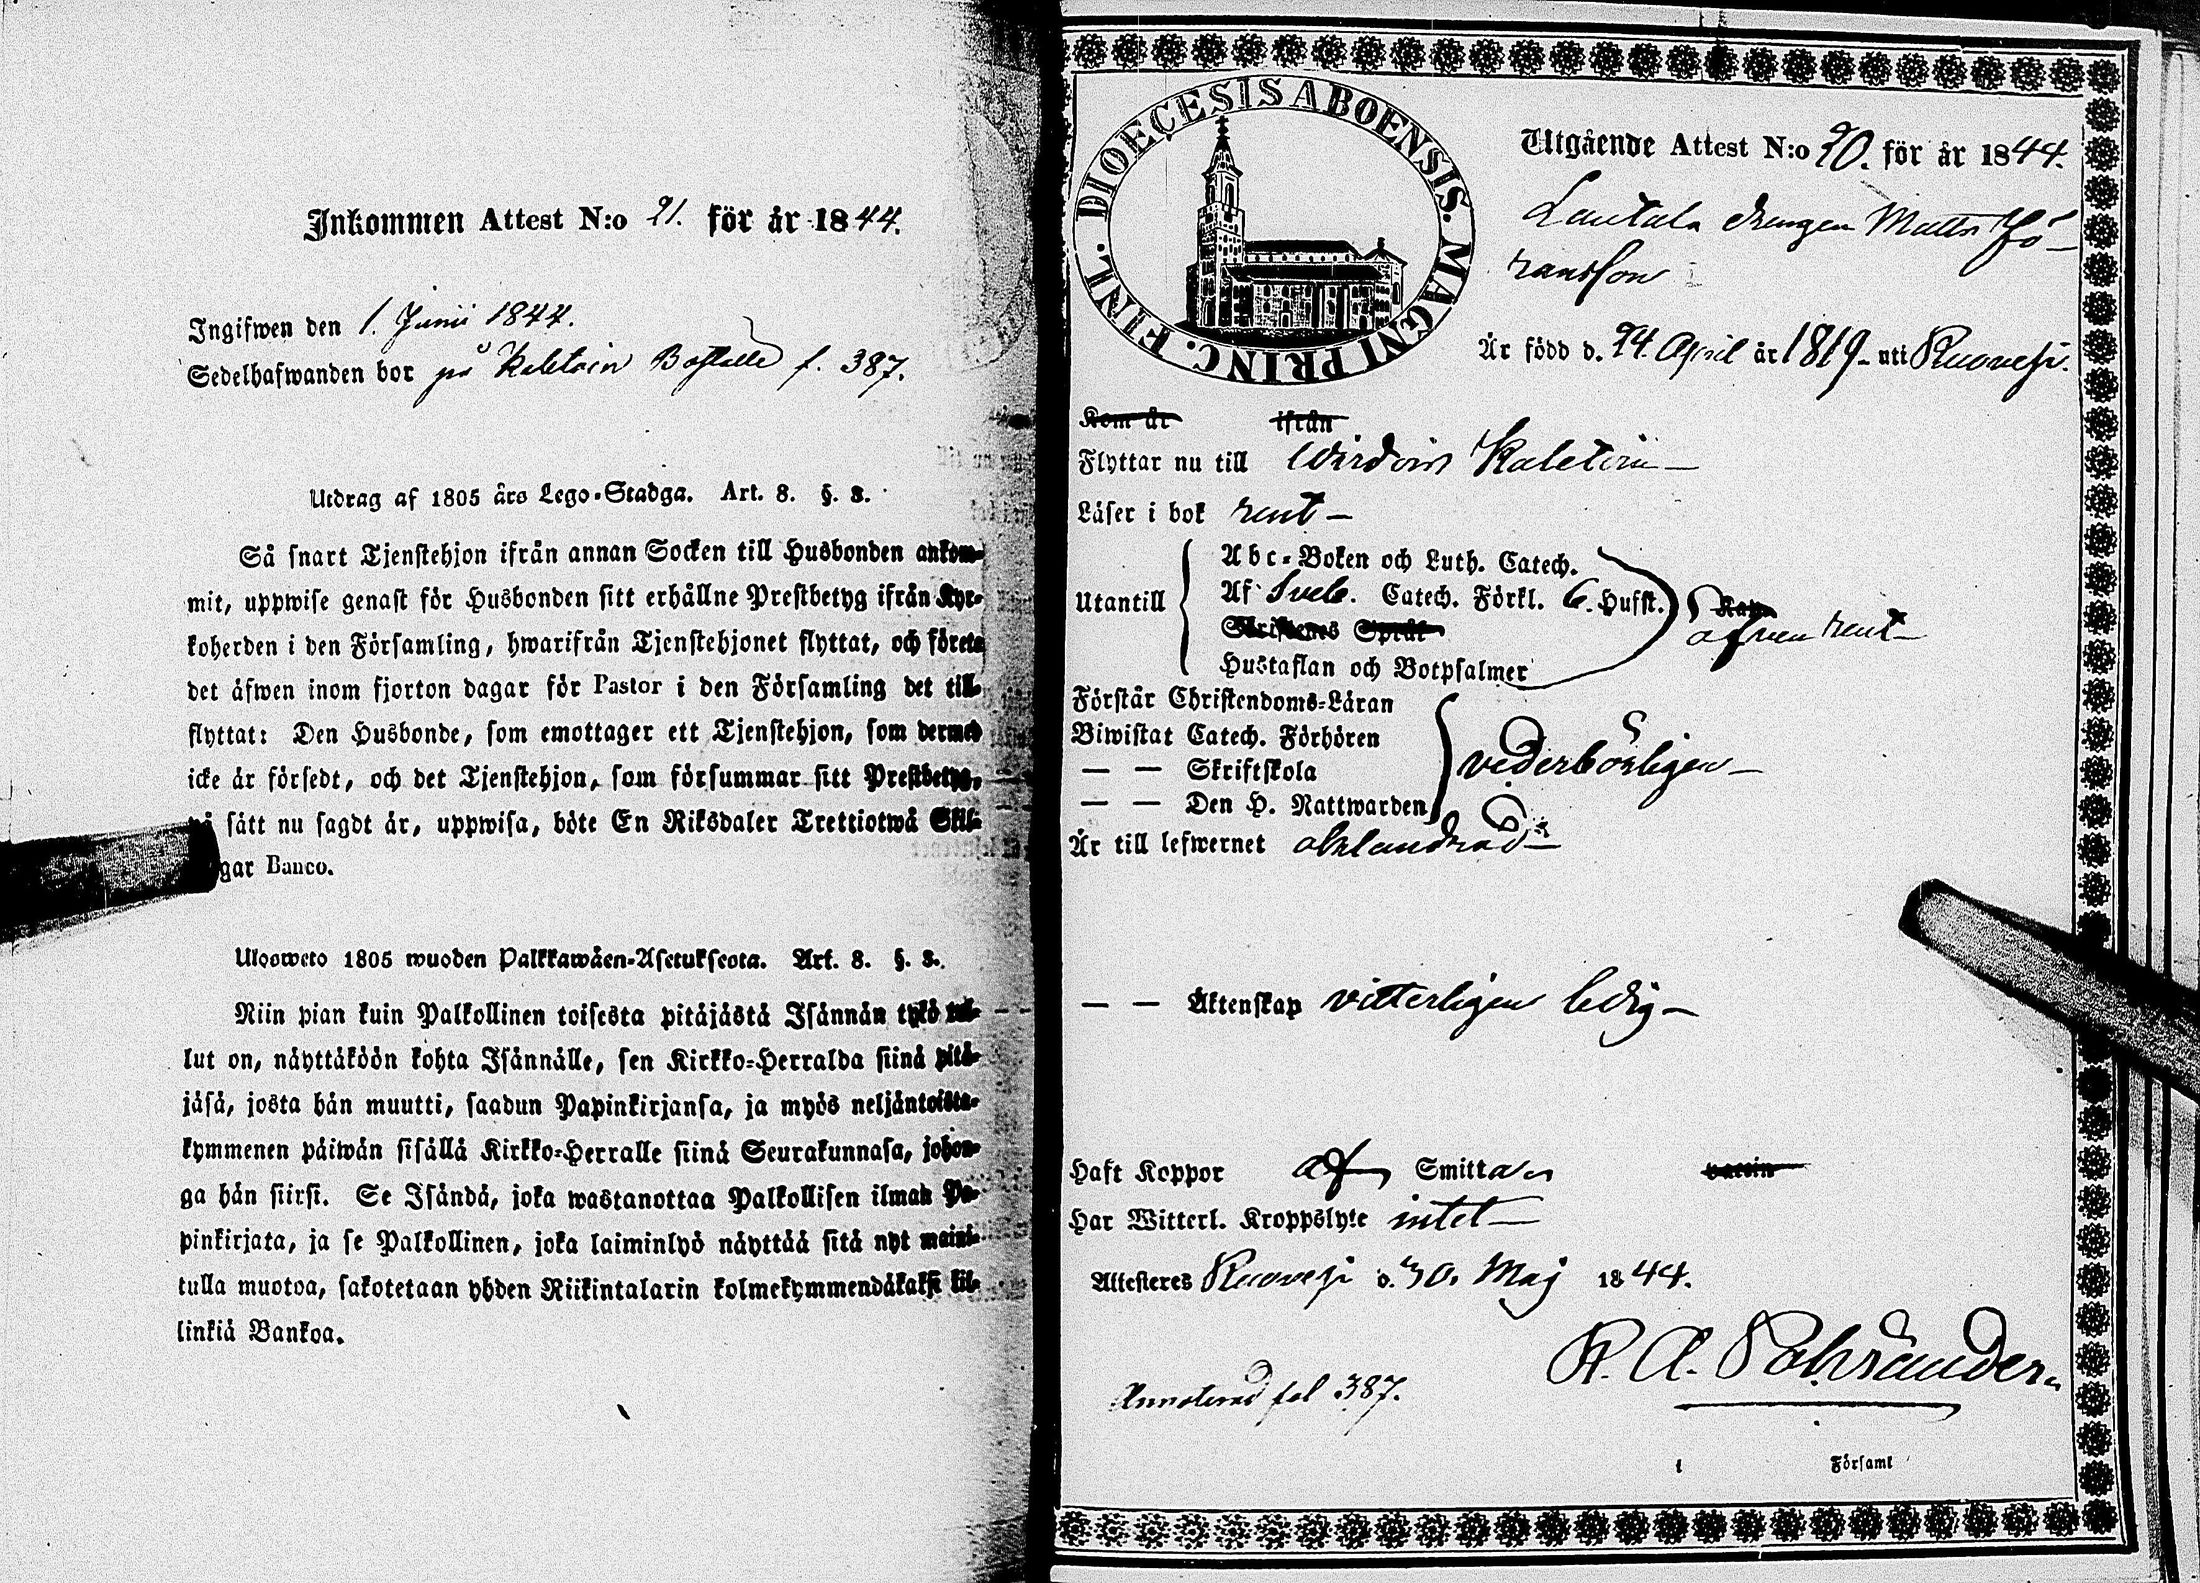 Inkommen Attest N:o 21. för år 1844.
Ingifwen den 1. Junii 1844.
Sedelhafwanden bor på Kaletoin Boställe f. 387.
Utdrag af 1805 års Lego-Stadga. Art. 8. §. 8.
Så snart Tjenstehjon ifrån annan Socken till Husbonden ankom-
mit, uppwise genast för Husbonden sitt erhållne Prestbetyg ifrån Kyr-
koherden i den Församling, hwarifrån Tjenstehjonet flyttat, och förete
det äfwen inom fjorton dagar för Pastor i den Församling det till-
flyttat: Den Husbonde, som emottager ett Tjenstehjon, som dermed
icke är försedt, och det Tjenstehjon, som försummar sitt Prestbetyg,
på sätt nu sagdt är, uppwisa, böte En Riksdaler Trettiotwå Skil-
gar Banco.
Ulosweto 1805 wuoden Palkkawäen-Asetuksesta. Art. 8. §. 8.
Niin pian kuin Palkollinen toisesta pitäjästä Isännän tykö tul-
lut on, näyttäköön kohta Isännälle, sen Kirkko-Herralda siinä pitä-
jäsä, josta hän muutti, saadun Papinkirjansa, ja myös neljäntoista-
kymmenen päiwän sisällä Kirkko-Herralle siinä Seurakunnasa, johon-
ga hän siirsi. Se Isändä, joka wastanottaa Palkollisen ilman Pa-
pinkirjata, ja se Palkollinen, joka laiminlyö näyttää sitä nyt maini-
tulla muotoa, sakotetaan yhden Riikintalarin kolmekymmendäkaksi kil-
linkiä Bankoa.
DIOECESIS ABOENSIS. MAGNI PRINC. FINL.
Utgående Attest N:o 20. för år 1844.
Lautala drengen Matts Jö-
ransson
Är född d. 24. April år 1819 uti Ruovesi.
Kom år ifrån
Flyttar nu till Wirdois Kaletoin
Läser i bok rent
Utantill
Abc-Boken och Luth. Catech.
Af Sveb. Catech. Förkl. 6. Hufst.
Skriftenes Språk
Hustaflan och Botpsalmer
äfven rent
Förstår Christendoms-Läran
Biwistat Catech. Förhören
— — Skriftskola
— — Den H. Nattwarden
vederbörligen
Är till lefwernet oklandrad
— — Äktenskap vitterligen ledig
Haft Koppor af Smittan vaccin
Har Witterl. Kroppslyte intet
Attesteres Ruovesi d. 30. Maj 1844.
Annoterad fol 387.
Församl